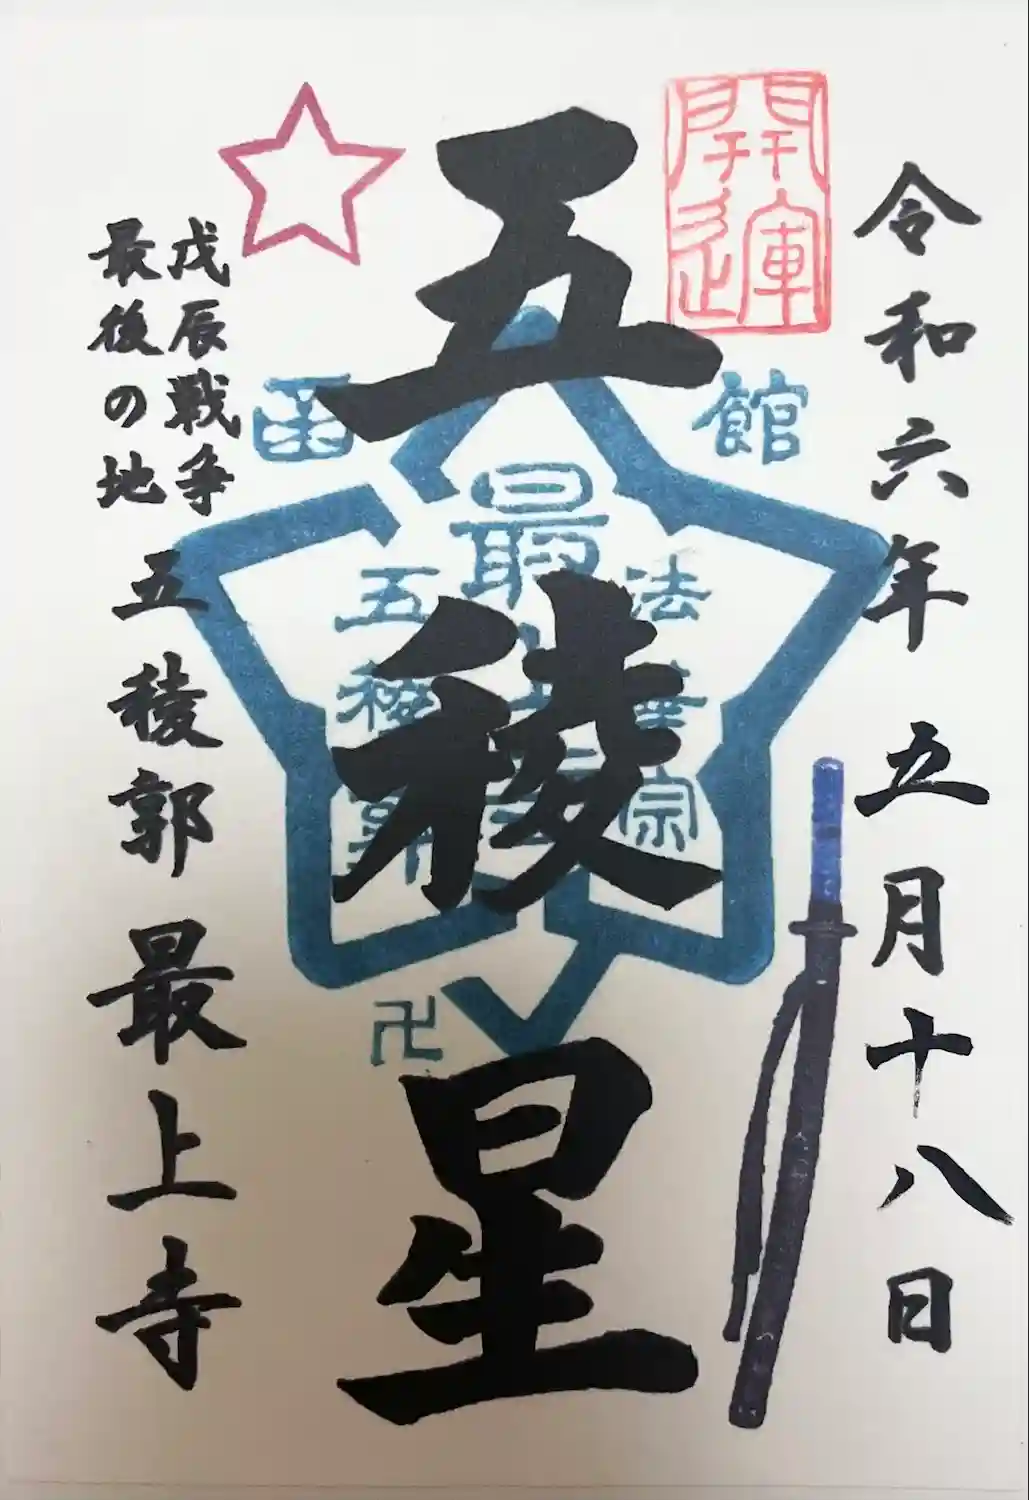 令和六年五月十八日
開運
五稜星
函館
法華宗
最上寺
五稜郭
卍
戊辰戦争
最後の地
五稜郭最上寺